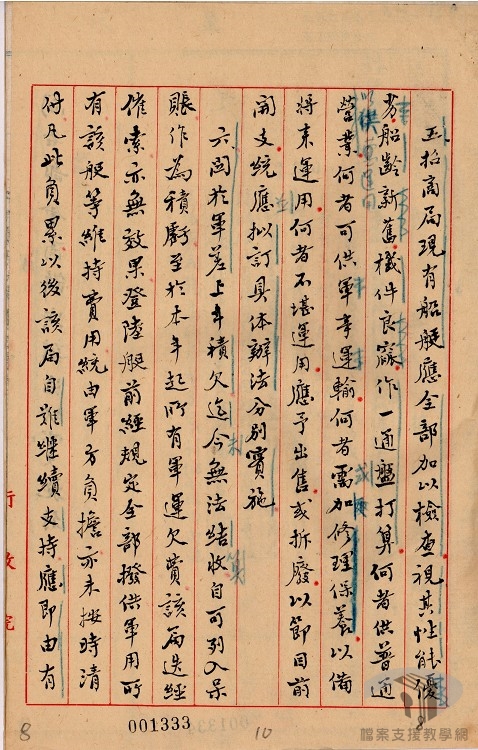 五招商局現有船艇應全部加以檢查視其性能優
劣船齡新舊機件良窳作一通盤打算何者供普通
營業何者可供軍事運輸何者需加修理保養以備
將來運用何者不堪運用應予出售或拆廢以節目前
開支統應擬訂具体辦法分別實施
六關於軍差上年積欠迄今無法結收自可列入呆
賬作為積虧至於本年起所有軍運欠費該局迭經
催索亦無效果登陸艇前經規定全部撥供軍用所
有該艇等維持費用統由軍方負擔亦未按時清
付凡此負累以後該局自難繼續支持應即由有
行政院
8
001333
10
8
檔案支援教學網